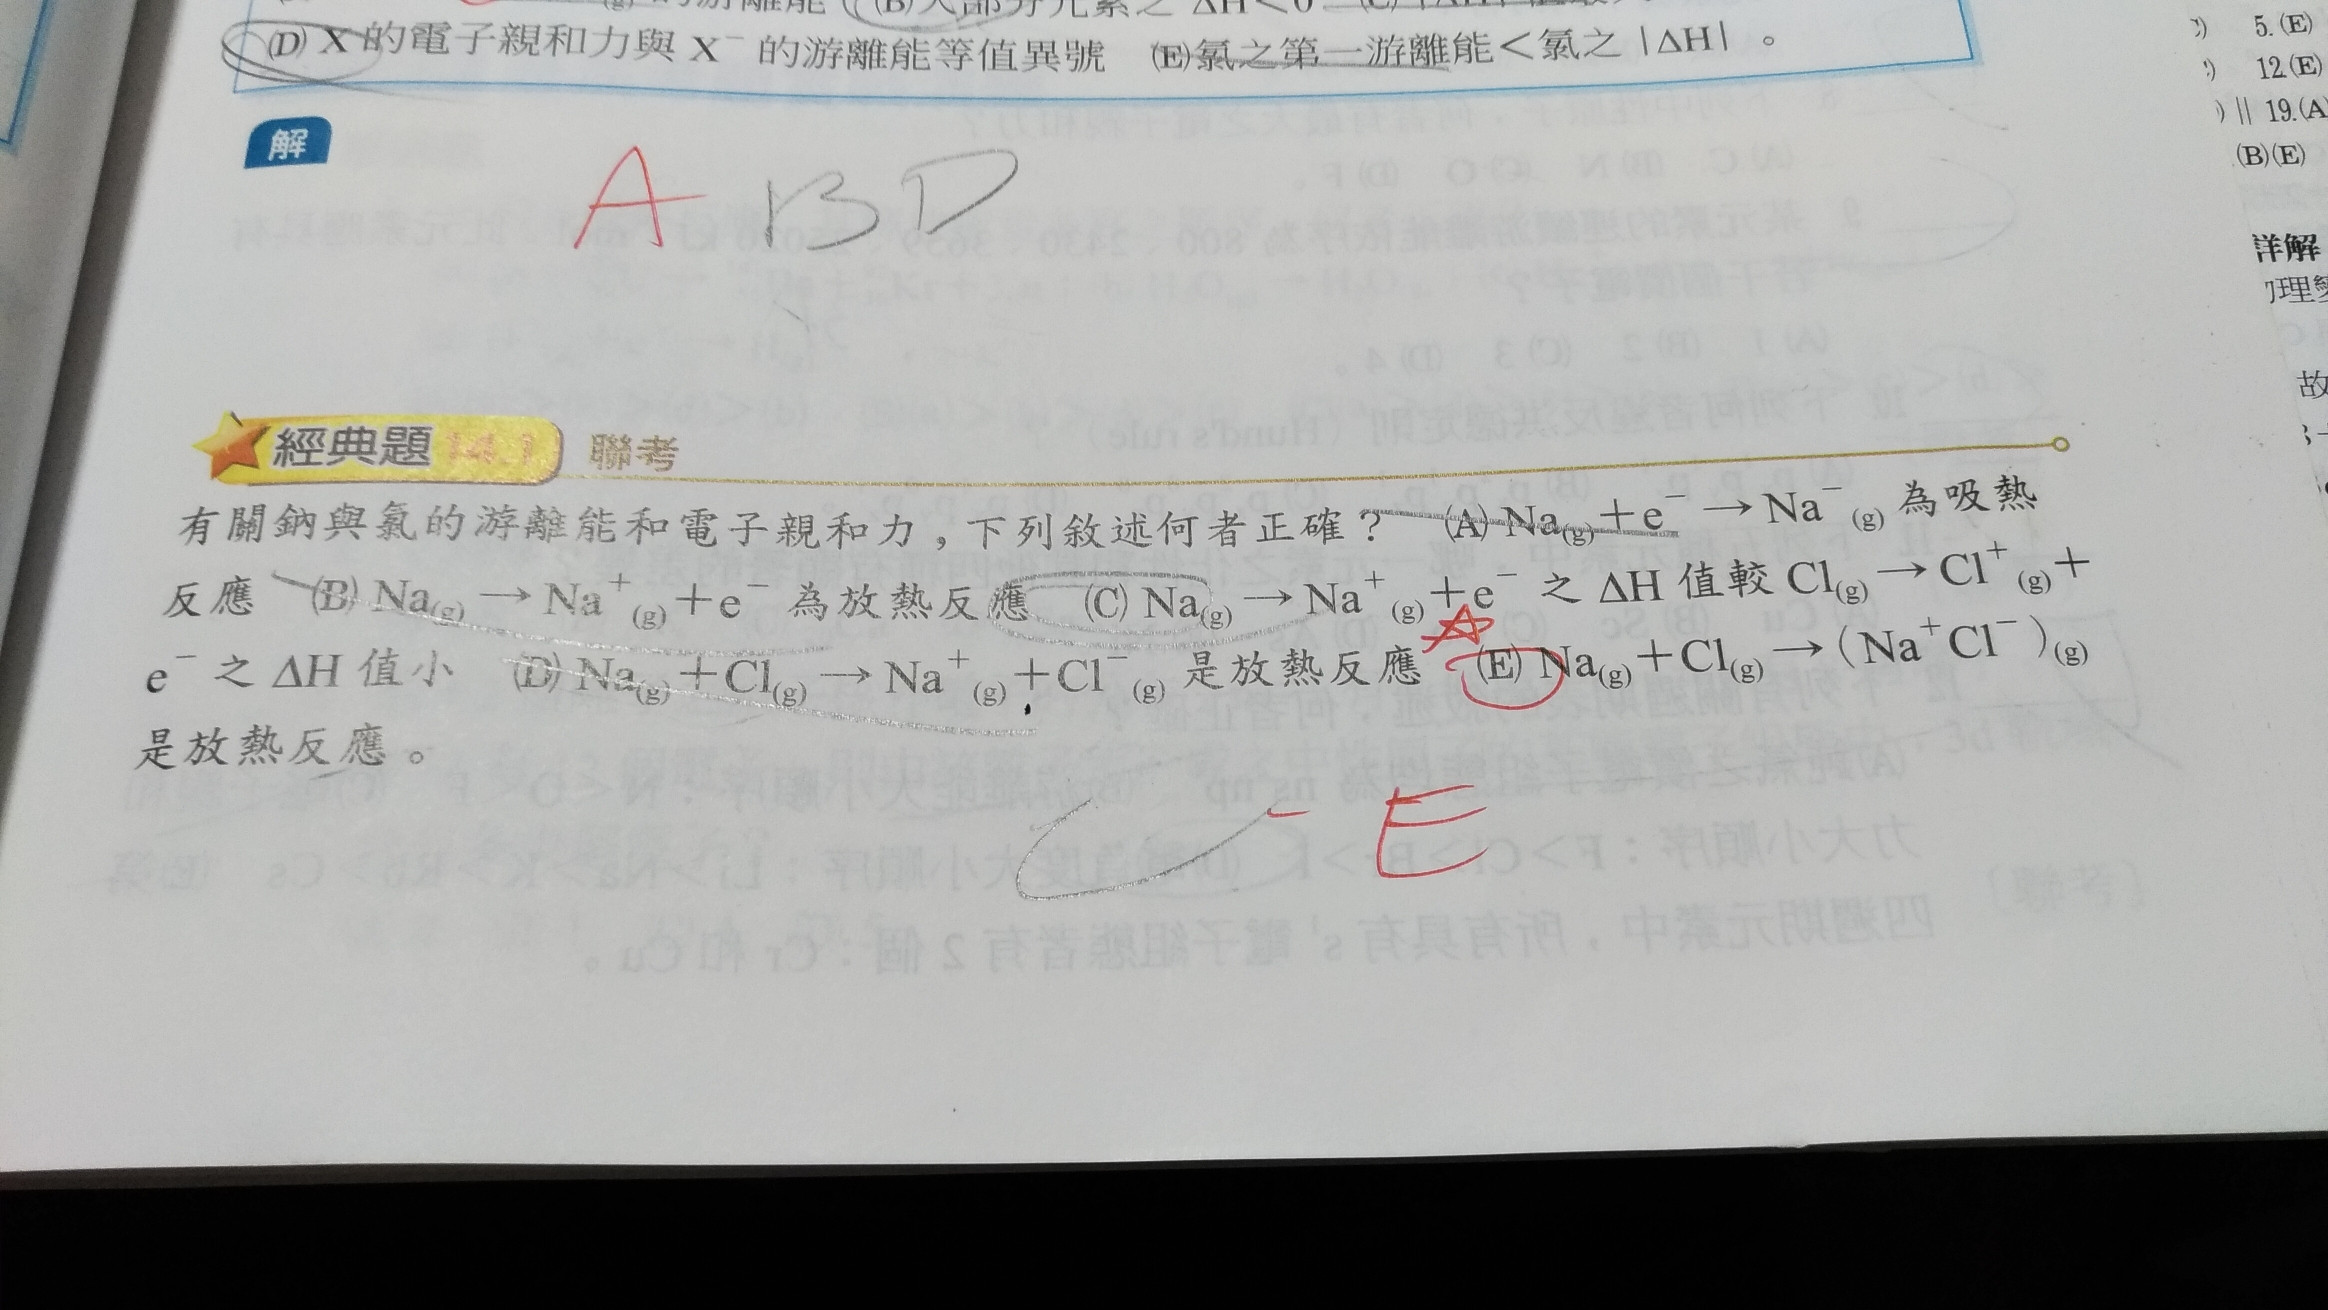 的游離能 (B)大部分元素之 ΔH<0 (C)
(D) X 的電子親和力與 X⁻ 的游離能等值異號 (E)氯之第一游離能<氯之 |ΔH| 。
解
A B D
經典題 14.1 聯考
有關鈉與氯的游離能和電子親和力,下列敘述何者正確? (A) Na(g)+e⁻→Na⁻(g) 為吸熱
反應 (B) Na(g)→Na⁺(g)+e⁻ 為放熱反應 (C) Na(g)→Na⁺(g)+e⁻ 之 ΔH 值較 Cl(g)→Cl⁺(g)+
e⁻ 之 ΔH 值小 (D) Na(g)+Cl(g)→Na⁺(g)+Cl⁻(g) 是放熱反應 (E) Na(g)+Cl(g)→(Na⁺Cl⁻)(g)
是放熱反應。
C E
5.(E)
12.(E)
19.(A
(B)(E)
詳解
理
故